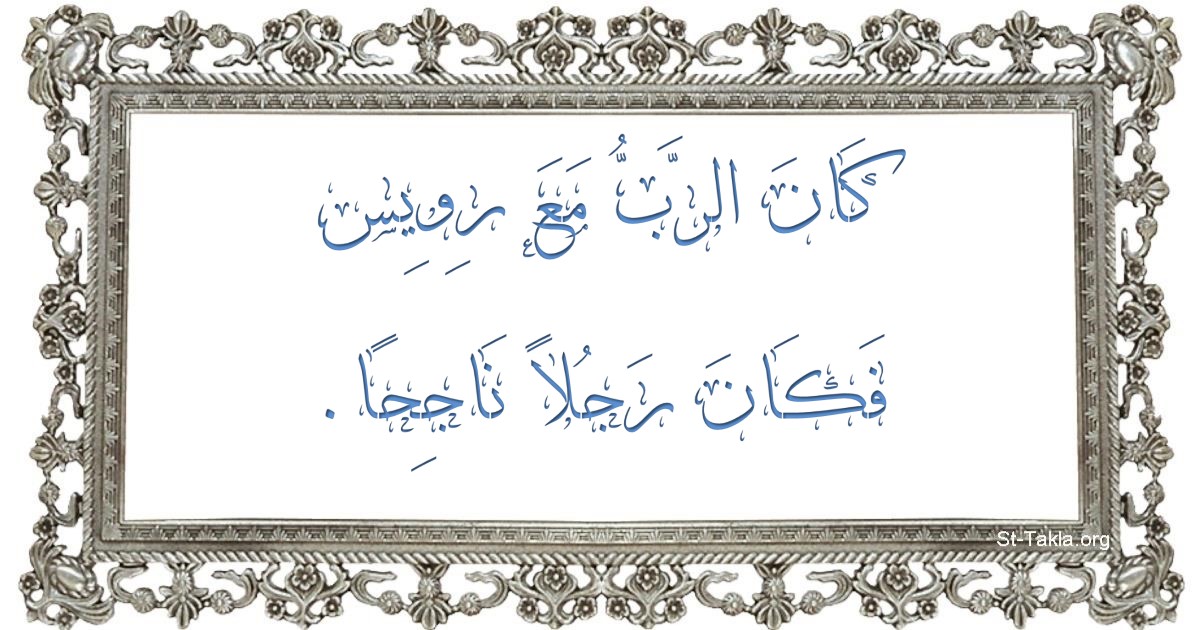 كَانَ الرَّبُّ مَعَ رِوِيِس
فَكَانَ رَجُلاً نَاجِحًا .
St-Takla.org